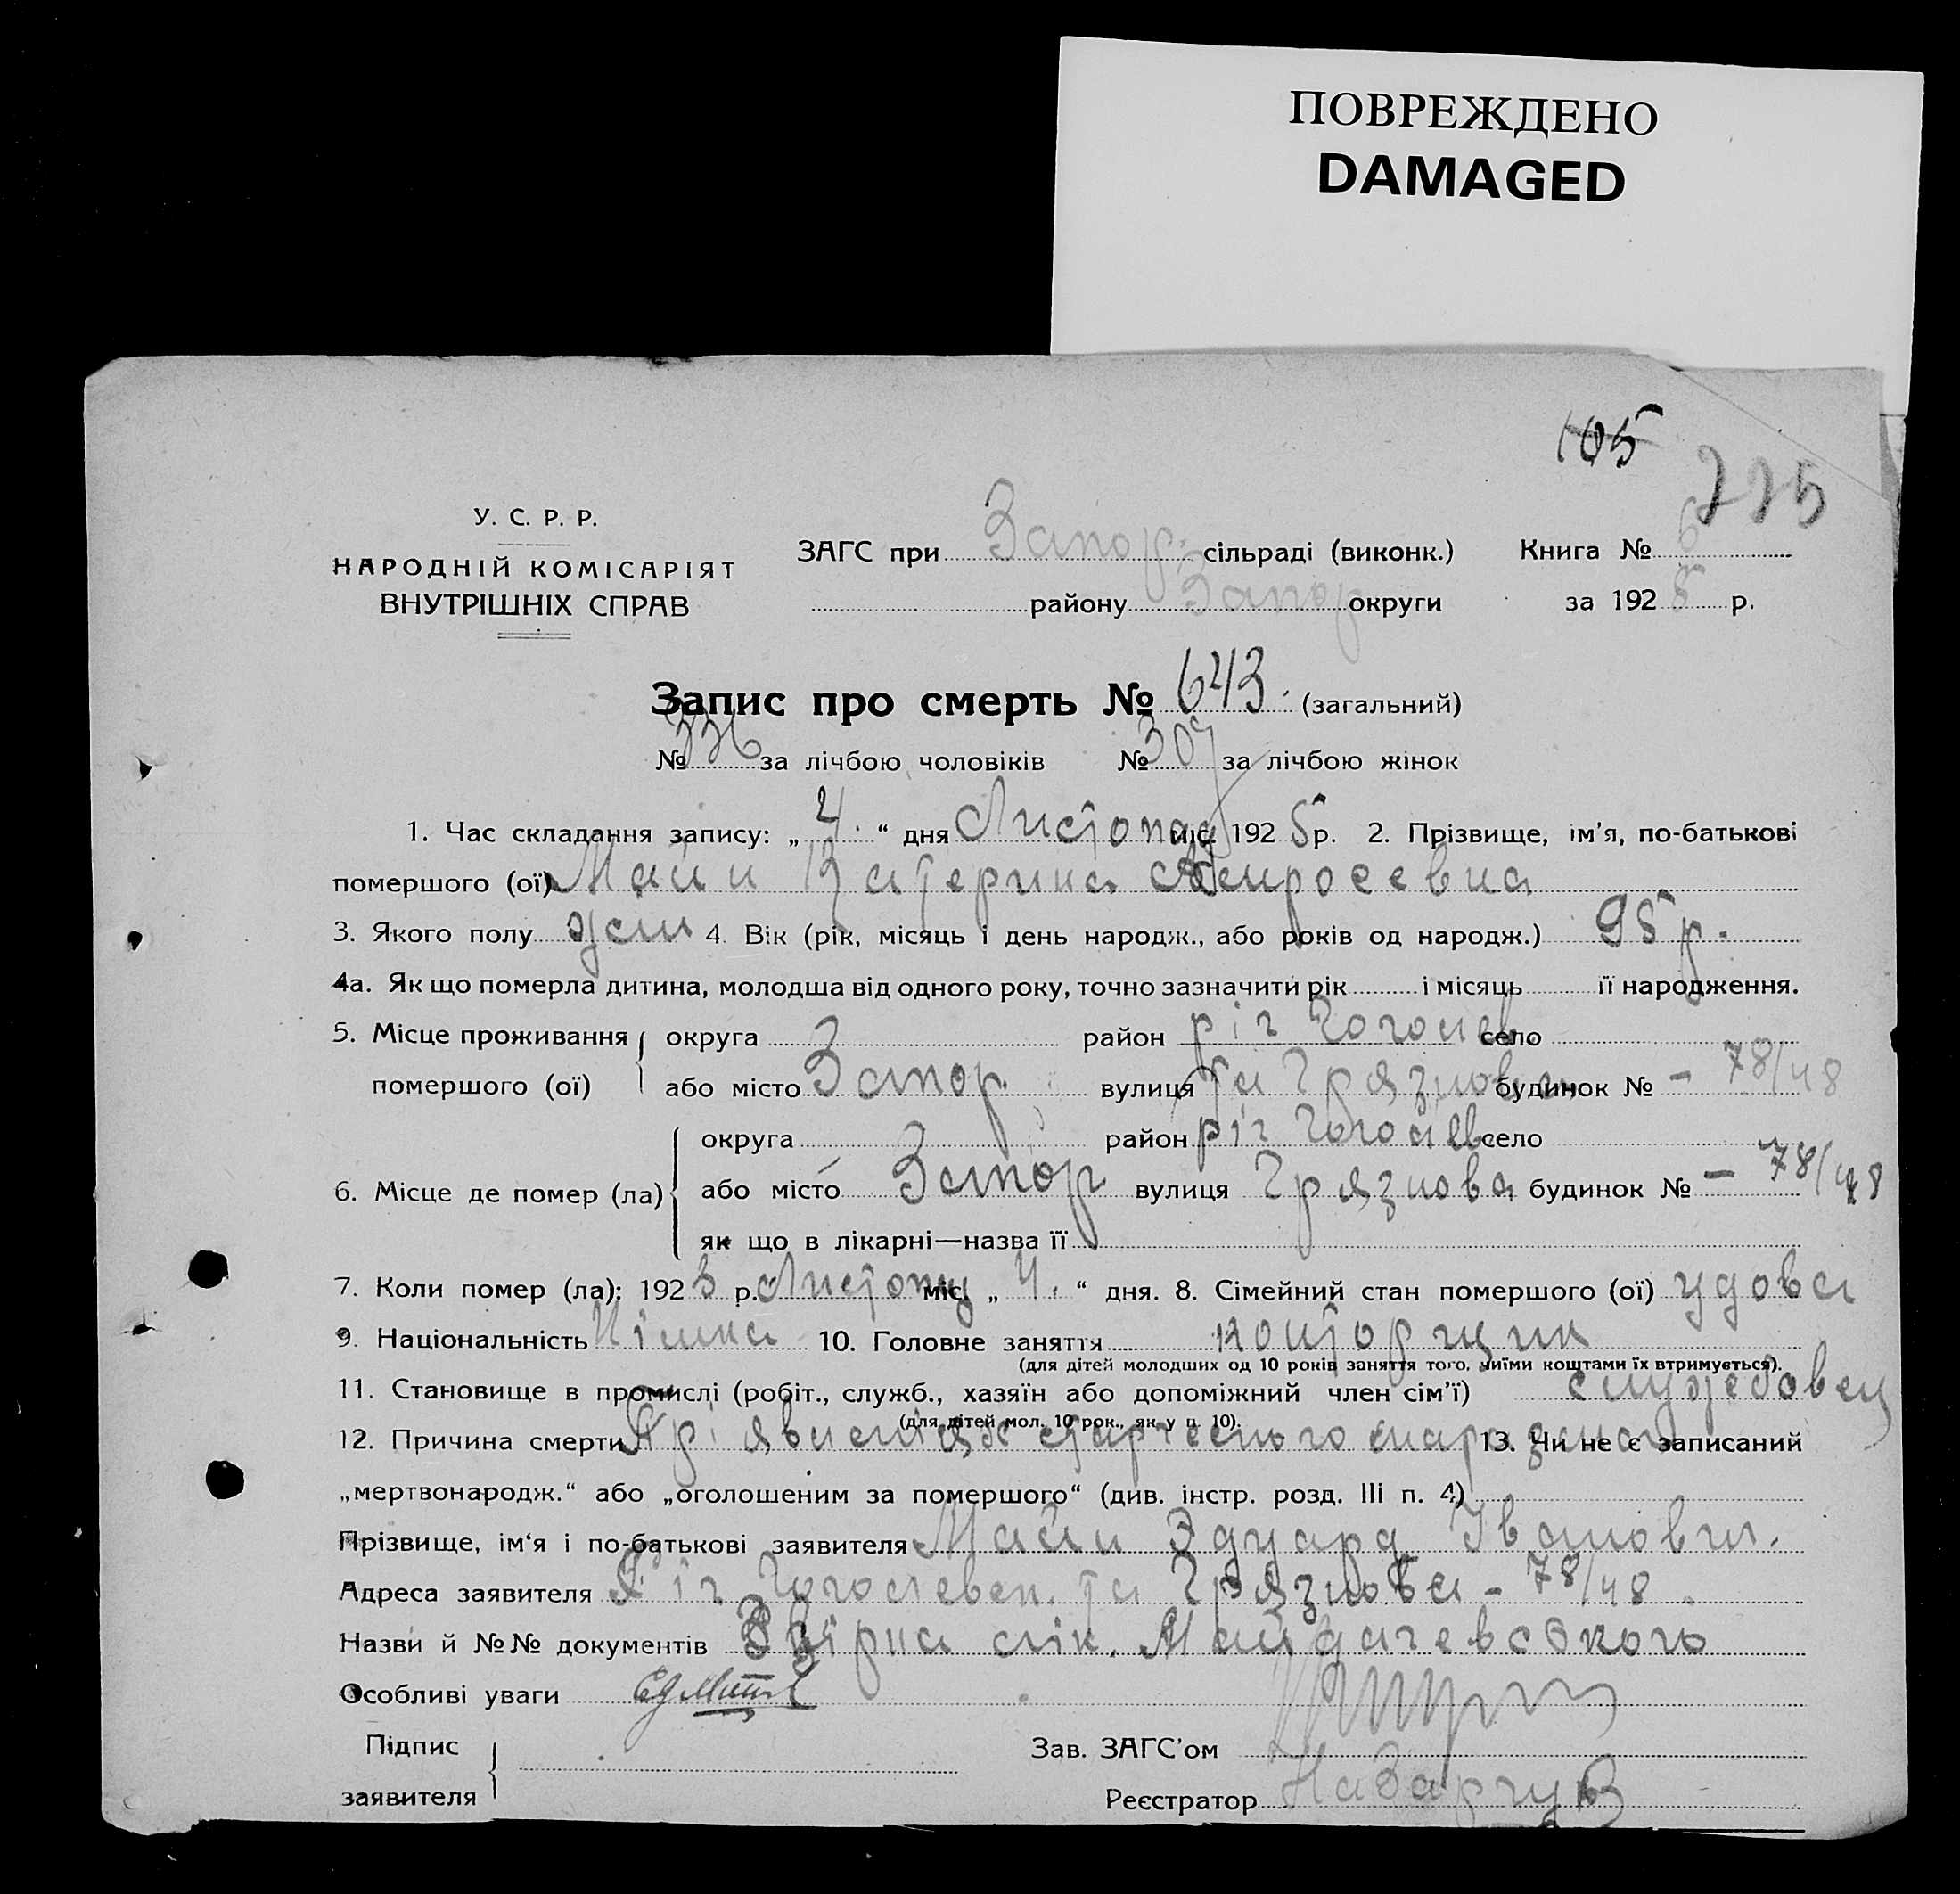 ПОВРЕЖДЕНО
DAMAGED
105
225
У. С. Р. Р.
НАРОДНІЙ КОМІСАРІЯТ
ВНУТРІШНІХ СПРАВ
ЗАГС при Запор. сільраді (виконк.) Книга № 6
району Запор округи за 1925 р.
Запис про смерть № 643. (загальний)
№ 336 за лічбою чоловіків № 307 за лічбою жінок
1. Час складання запису: „ 4. “ дня Листопад міс. 192 5 р. 2. Прізвище, ім'я, по-батькові
помершого (ої) Майи Катерина
3. Якого полу жін 4. Вік (рік, місяць і день народж., або років од народж.) 95 р.
4а. Як що померла дитина, молодша від одного року, точно зазначити рік і місяць її народження.
5. Місце проживання округа район ріг Гоголев. село
помершого (ої) або місто Запор. вулиця та Грязнова будинок № – 78/48
округа район ріг Гоголев село
6. Місце де помер (ла) або місто Запор вулиця Грязнова будинок № – 78/48
як що в лікарні—назва її
7. Коли помер (ла): 192 р. Листопад міс. „ 4. “ дня. 8. Сімейний стан помершого (ої) удова
9. Національність Німка 10. Головне заняття конторщик
(для дітей молодших од 10 років заняття того, чиїми коштами їх втримується).
11. Становище в промислі (робіт., служб., хазяїн або допоміжний член сім'ї) службовец
(для дітей мол. 10 рок., як у п. 10).
12. Причина смерти Прі явленіях старческого 13. Чи не є записаний
„мертвонародж.“ або „оголошеним за помершого“ (див. інстр. розд. III п. 4)
Прізвище, ім'я і по-батькові заявителя Майи Эдуард Іванович.
Адреса заявителя Ріг Гоголевск. та Грязнова – 78/48.
Назви й №№ документів лік. Майдачевського
Особливі уваги
Підпис
заявителя
Зав. ЗАГС'ом
Реєстратор Назарчук